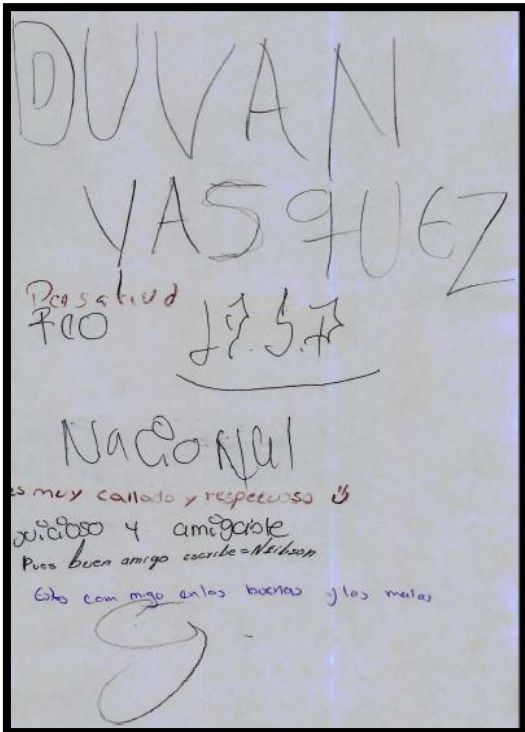 DUVAN
VASQUEZ
FCO
Nacional
es muy callado y respetuoso
juicioso y amigable
Pues buen amigo escribe = Neilson
Esta con migo en las buenas y las malas